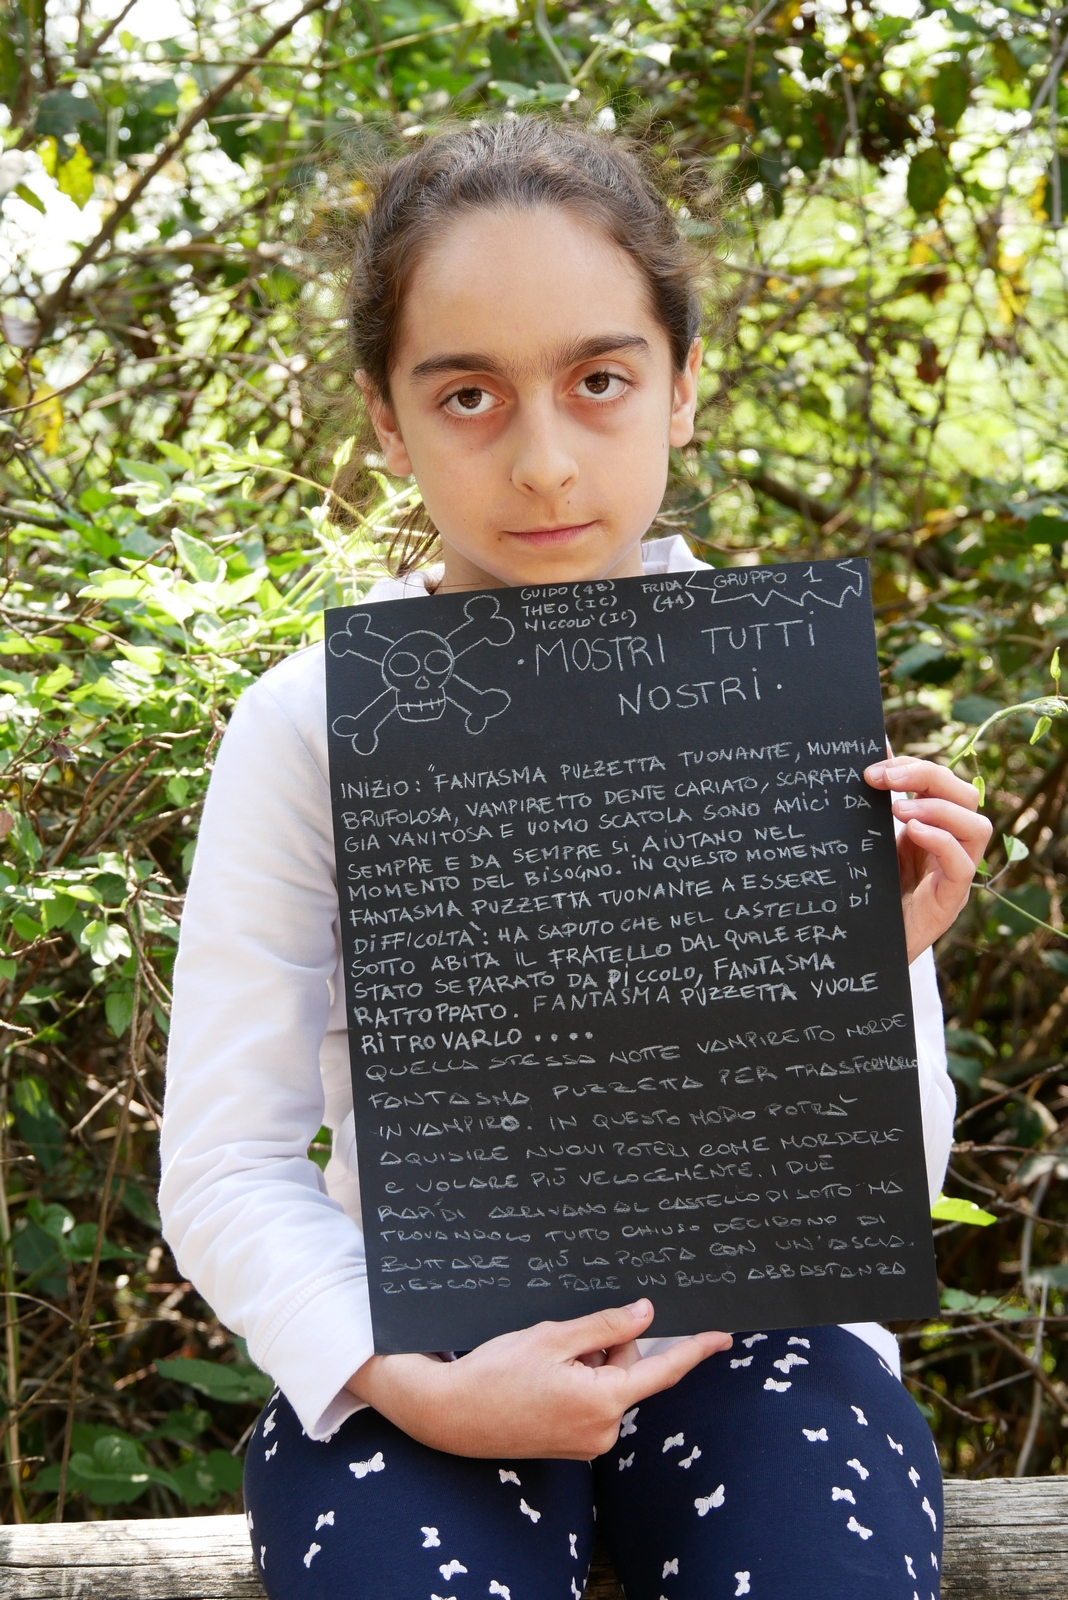 GUIDO (4B) FRIDA
THEO (IC) (4A)
NICCOLO' (IC)
GRUPPO 1
·MOSTRI TUTTI
NOSTRI.
INIZIO: "FANTASMA PUZZETTA TUONANTE, MUMMIA
BRUFOLOSA, VAMPIRETTO DENTE CARIATO, SCARAFA
GIA VANITOSA E UOMO SCATOLA SONO AMICI DA
SEMPRE E DA SEMPRE SI AIUTANO NEL
MOMENTO DEL BISOGNO. IN QUESTO MOMENTO È
FANTASMA PUZZETTA TUONANTE A ESSERE IN
DIFFICOLTÀ: HA SAPUTO CHE NEL CASTELLO DI
SOTTO ABITA IL FRATELLO DAL QUALE ERA
STATO SEPARATO DA PICCOLO, FANTASMA
RATTOPPATO. FANTASMA PUZZETTA VUOLE
RITROVARLO ....
QUELLA STESSA NOTTE VAMPIRETTO MORDE
FANTASMA PUZZETTA PER TRASFORMARLO
IN VAMPIRO. IN QUESTO MODO POTRÀ
AQUISIRE NUOVI POTERI COME MORDERE
E VOLARE PIÙ VELOCEMENTE. I DUE
RAPIDI ARRIVANO AL CASTELLO DI SOTTO MA
TROVANDOLO TUTTO CHIUSO DECIDONO DI
BUTTARE GIÙ LA PORTA CON UN'ASCIA.
RIESCONO A FARE UN BUCO ABBASTANZA